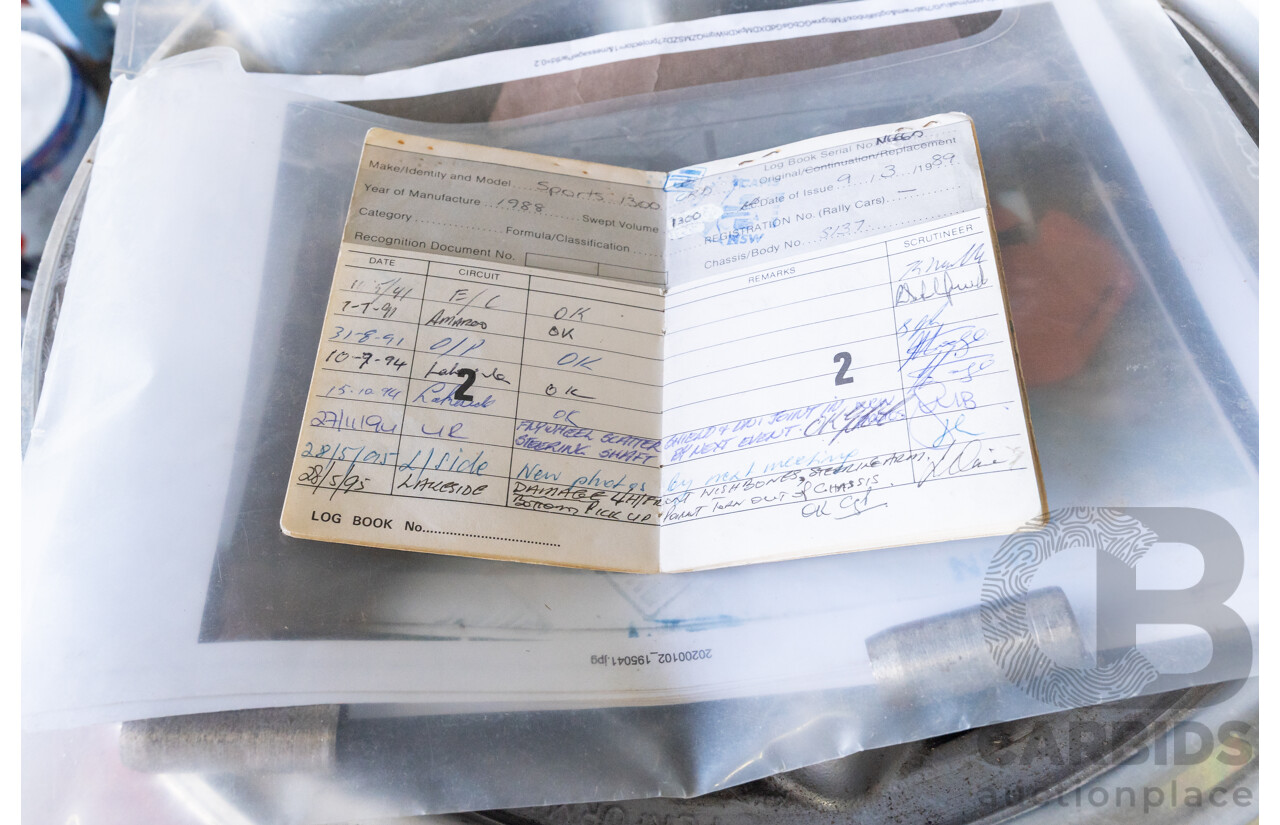 Make/Identity and Model Sports 1300
Year of Manufacture 1988 Swept Volume 1300
Category Formula/Classification
Recognition Document No.
Log Book Serial No.
Original/Continuation/Replacement
Date of Issue 9 / 3 / 1989
REGISTRATION No. (Rally Cars) —
NSW
Chassis/Body No. S137
DATE CIRCUIT REMARKS SCRUTINEER
E/C OK
7-7-91 Amaroo OK
31-8-91 O/P OK
10-7-94 OK
15-10-94 OK
27/11/94 FLYWHEEL SCATTER SHIELD & UNI JOINT IN
STEERING SHAFT BY NEXT EVENT. OK
28/5/95 L/side New photos by next meeting
28/5/95 LAKESIDE DAMAGE WISHBONES, STEERING ARM.
BOTTOM PICK UP POINT TORN OUT OF CHASSIS
OK
2
2
LOG BOOK No.
20200102_195041.jpg
CB
CARBIDS
auctionplace